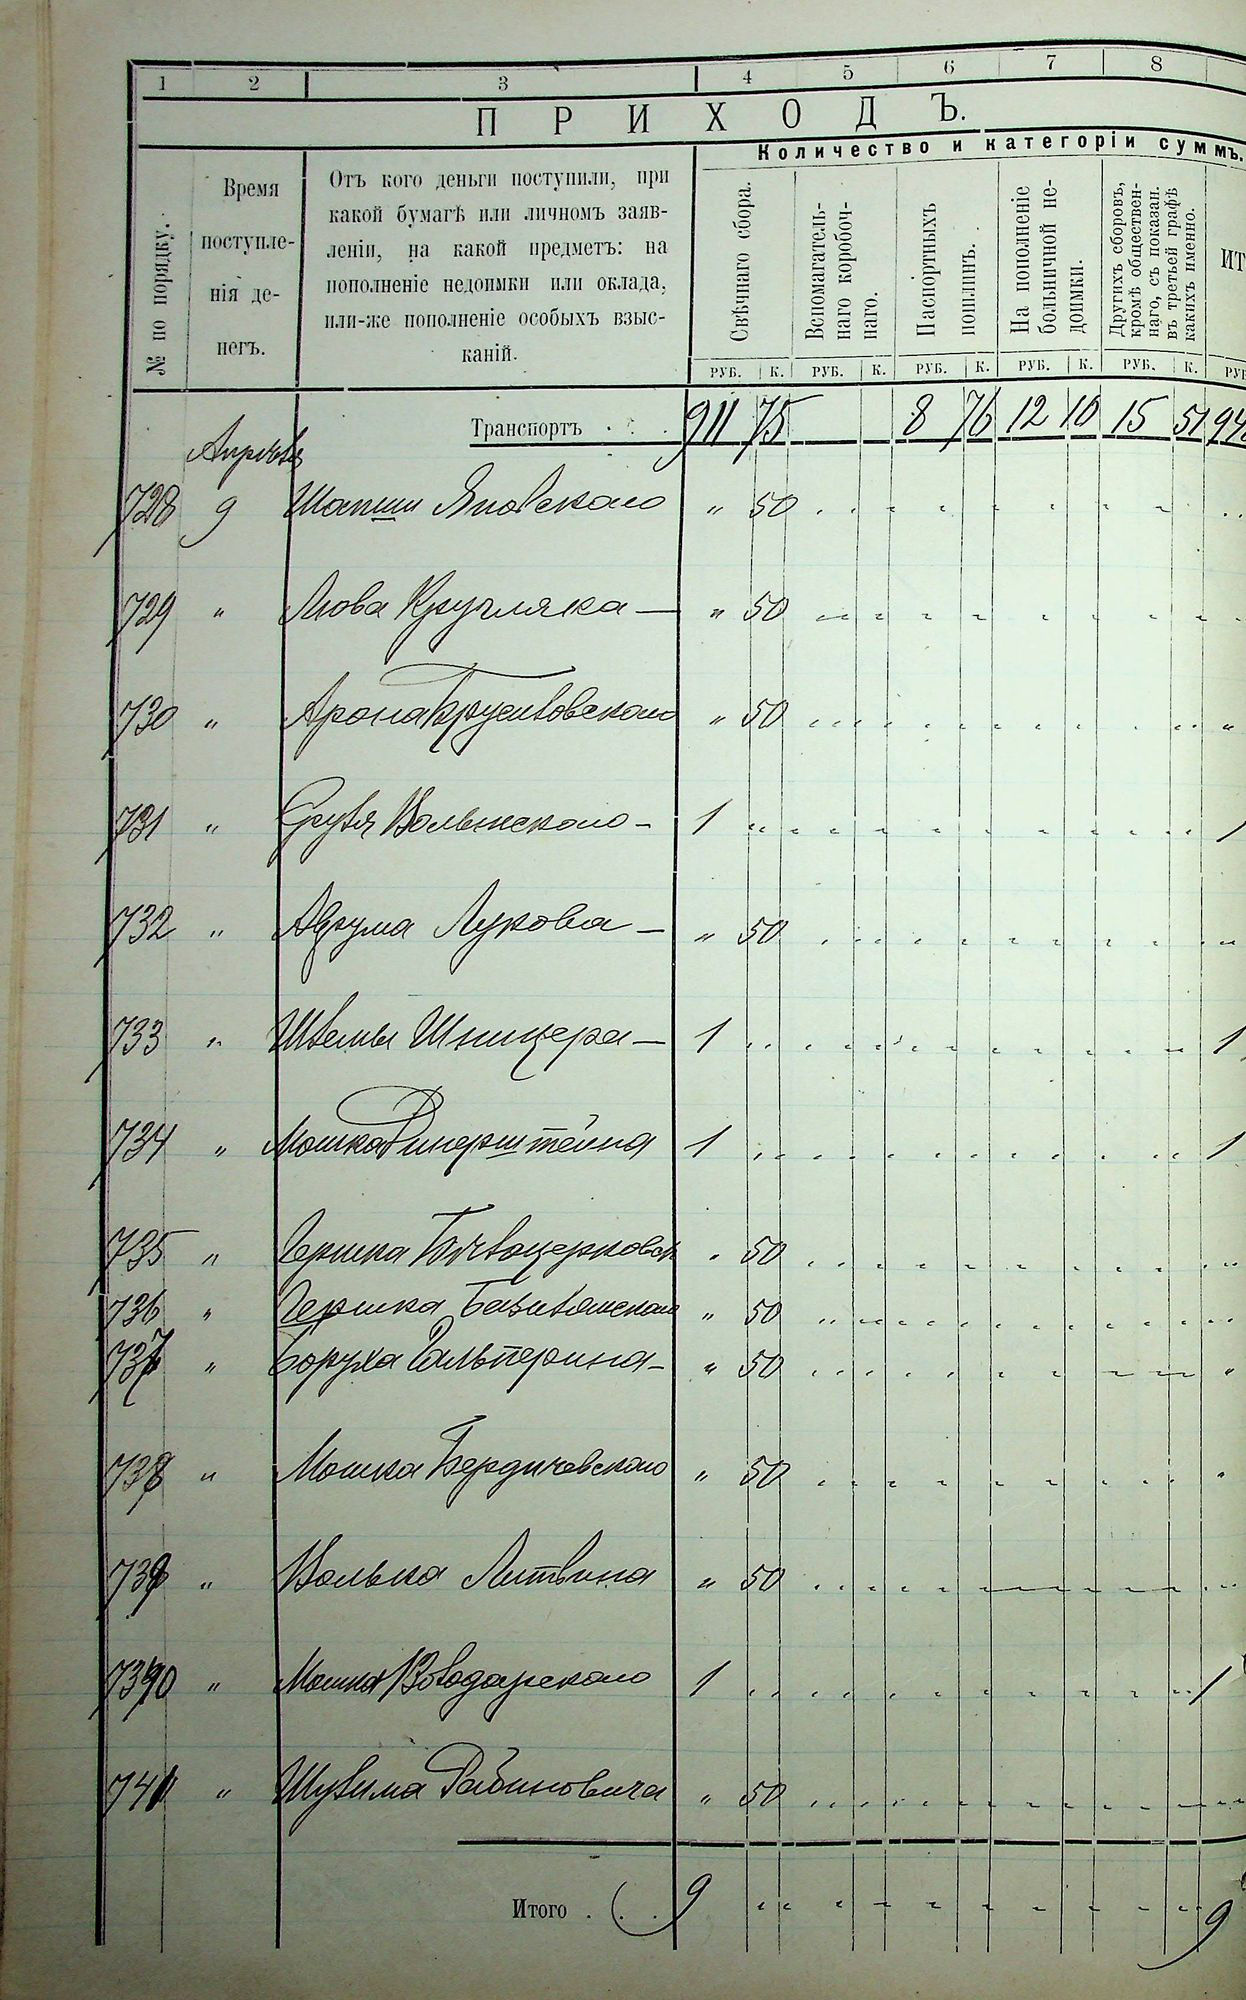 1 2 3 4 5 6 7 8
ПРИХОДЪ.
Количество и категоріи суммъ.
№ по порядку.
Время поступле-
нія де-
негъ.
Отъ кого деньги поступили, при
какой бумагѣ или личномъ заяв-
леніи, на какой предметъ: на
пополненіе недоимки или оклада,
или-же пополненіе особыхъ взыс-
каній.
Свѣчнаго сбора.
Вспомагатель-
наго коробоч-
наго.
Паспортныхъ
пошлинъ.
На пополненіе
больничной не-
доимки.
Другихъ сборовъ,
кромѣ обществен-
наго, съ показан.
въ третьей графѣ
какихъ именно.
ИТ
РУБ. К. РУБ. К. РУБ. К. РУБ. К. РУБ. К. РУБ
Транспортъ . . . 911 75 8 76 12 10 15 51
Апрѣль
728 9 Шапши Яновскаго " 50
729 " Лейба Кругляка — " 50
730 " Арона Брусиловскаго " 50
731 " Сруля Волынскаго - 1 "
732 " Аврума Лукова — " 50
733 " Шлемы Шницера — 1
734 " Мошка Динерштейна 1 1
735 " Гершка Бѣлоцерковск " 50
736 " Гершка " 50
737 " Боруха Гальперина - " 50
738 " Мошка Бердичевскаго " 50
739 " Волька Литвина " 50
740 " Мошка Володарскаго 1 1
741 " Шулима Рабиновича " 50
Итого . . . 9 9